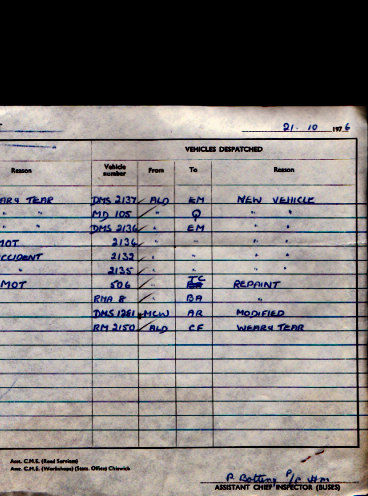 21. 10 1976
VEHICLES DESPATCHED
Reason Vehicle number From To Reason
TEAR DMS 2137 ALD EM NEW VEHICLE
" " MD 105 " Q " "
" " DMS 2136 " EM " "
MOT 2134 " " " "
CCIDENT 2132 " " " "
" 2135 " " " "
MOT 506 " TC REPAINT
RMA 8 " BA "
DMS 1251 MCW AR MODIFIED
RM 2150 ALD CF WEAR & TEAR
Asst. C.M.E. (Road Services)
Asst. C.M.E. (Workshops) (Stats. Office) Chiswick
ASSISTANT CHIEF INSPECTOR (BUSES)